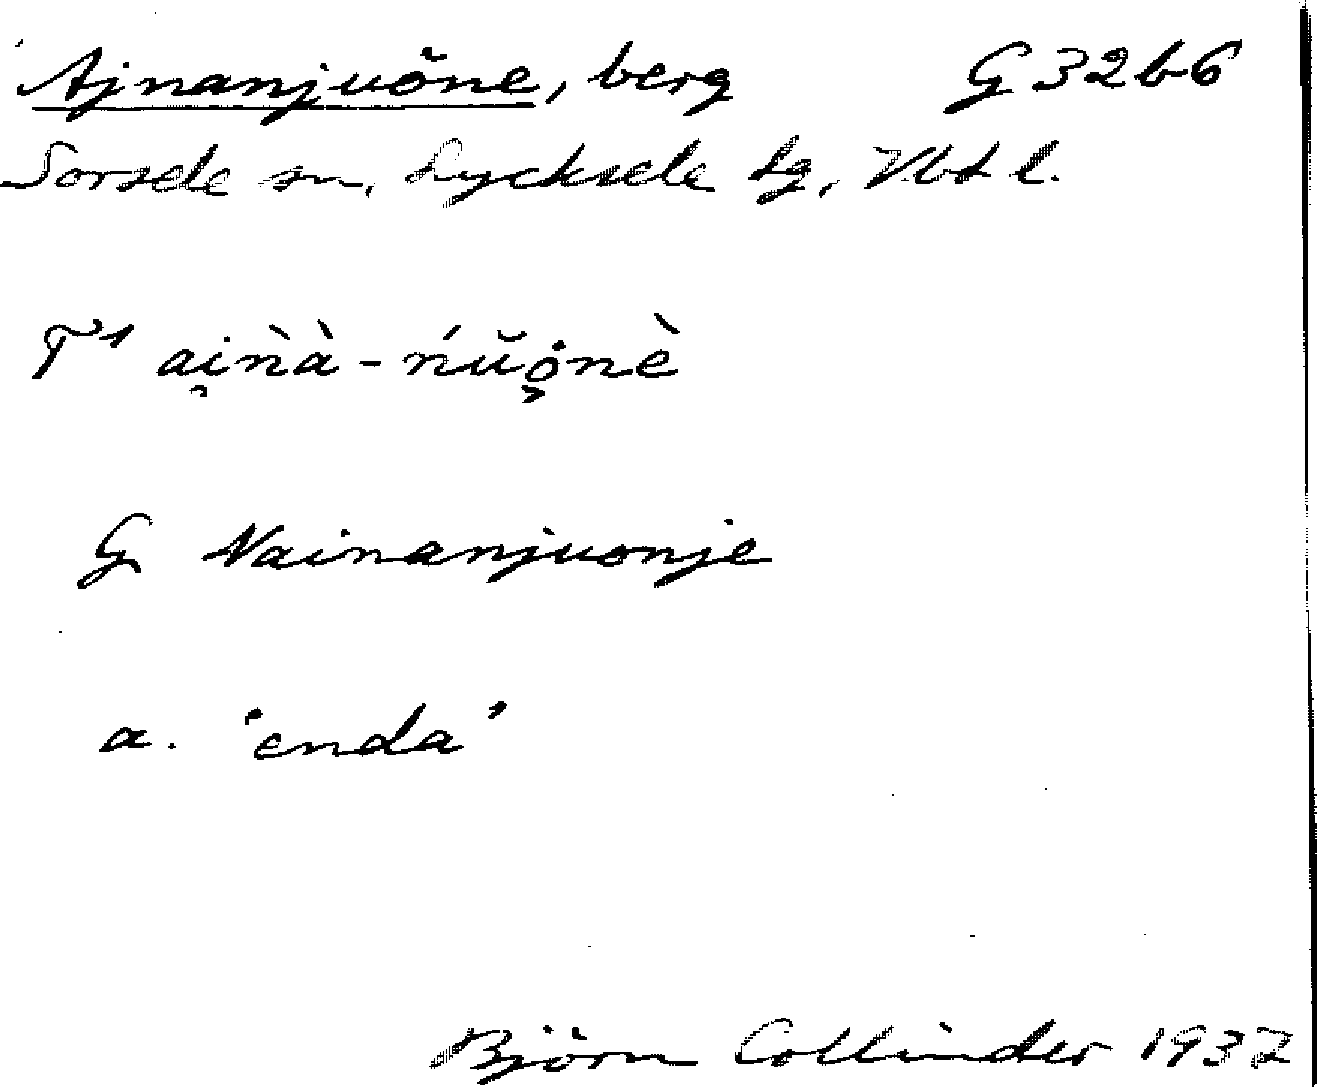 Ajnanjuŏne, berg G 32b6
Sorsele sn, Lycksele lg, Vbt l.
T¹ ai̯ǹà-ńŭo̭nè
G Nainanjuonje
a. 'enda'
Björn Collinder 1937